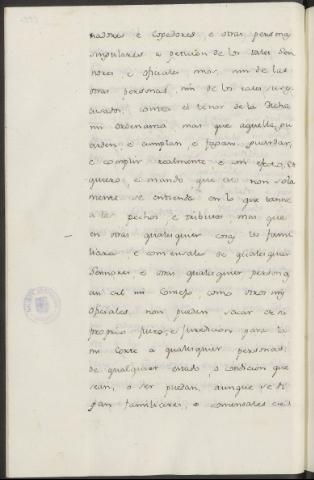 nadores e cogedores e otras personas
singulares a peticion de los tales Sen
nores, e oficiales mos, nin de las
otras personas, nin de los tales
contra el tenor de la dicha
mi ordenanza mas que aquella gu
arden e cumplan, e fagan guardar,
e complir realmente e con efecto, Et
quiero, e mando, que esto non sola
mente se entienda en lo que tanne
a los pechos e tributos mas que
en otras qualesquier cosas los fami
liares, e comensales de qualesquier
Sennores, e otras qualesquier personas
asi del mi Consejo, como otros mis
oficiales non puedan sacar de su
proprio fuero, e juredicion para la
mi corte a qualesquier personas
de qualquier estado, o condicion que
sean, o ser puedan, aunque se di
gan familiares, o comensales de